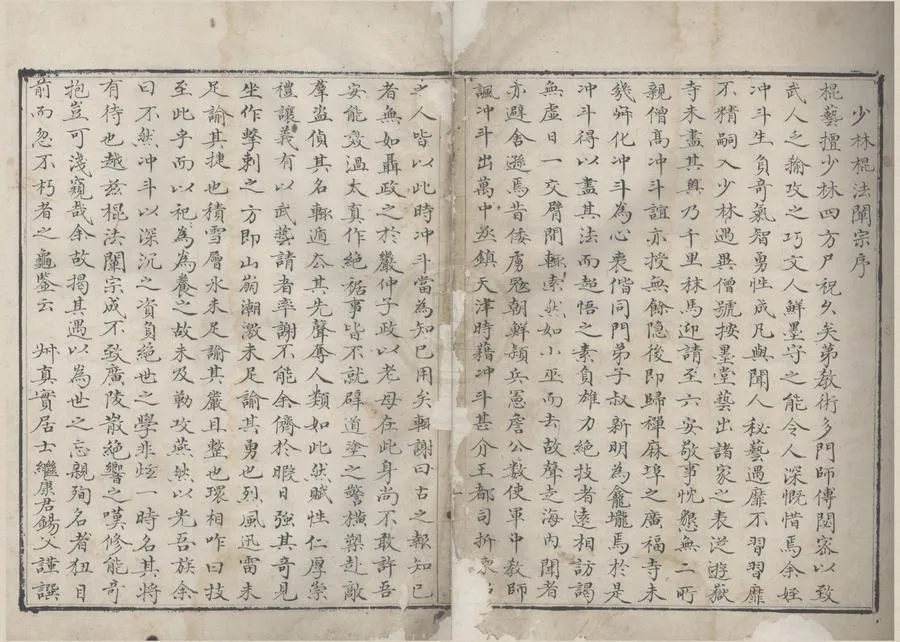 少林棍法闡宗序
棍藝擅少林四方尸祝久矣第教術多門師傳閟密以致
武人之輸攻之巧文人鮮墨守之能令人深慨惜焉余姪
冲斗生負奇氣智勇性成凡與聞人秘藝遇靡不習習靡
不精嗣入少林遇異僧號按墨堂藝出諸家之表從遊嶽
寺未盡其奧乃千里秣馬迎請至六安敬事忱懇無二所
親僧高冲斗誼亦授無餘隱後即歸禪麻埠之廣福寺未
幾舜化冲斗為心喪偕同門弟子叔新明為龕壠焉於是
冲斗得以盡其法而超悟之素負雄力絕技者遠相訪謁
無虛日一交臂間輒索然如小巫而去故聲走海內聞者
亦避舍遜焉昔倭虜冠朝鮮潁兵憲詹公數使軍中教師
諷冲斗出萬中丞鎮天津時藉冲斗甚介王都司折柬
之人皆以此時冲斗當為知已用矣輒謝曰古之報知已
者無如聶政之於嚴仲子政以老母在此身尚不敢許吾
安能效溫太真作絕裾事皆不就辟道塗之警橫禦赴敵
羣盜偵其名輒遁厺其先聲奪人類如此然賦性仁厚崇
禮讓義有以武藝請者率謝不能余儕於暇日強其奇見
坐作擊刺之方即山崩潮激未足諭其勇也烈風迅雷未
足諭其捷也積雪層氷未足諭其嚴且整也環相咋曰技
至此乎而以祀為為養之故未及勒攻燕然以光吾族余
曰不然冲斗以深沉之資負絕世之學非炫一時名其將
有待也越茲棍法闡宗成不致廣陵散絕響之嘆修能奇
抱豈可淺窺哉余故揭其遇以為世之忘親殉名者狃目
前而忽不朽者之龜鑒云　艸真實居士繼康君錫父謹譔